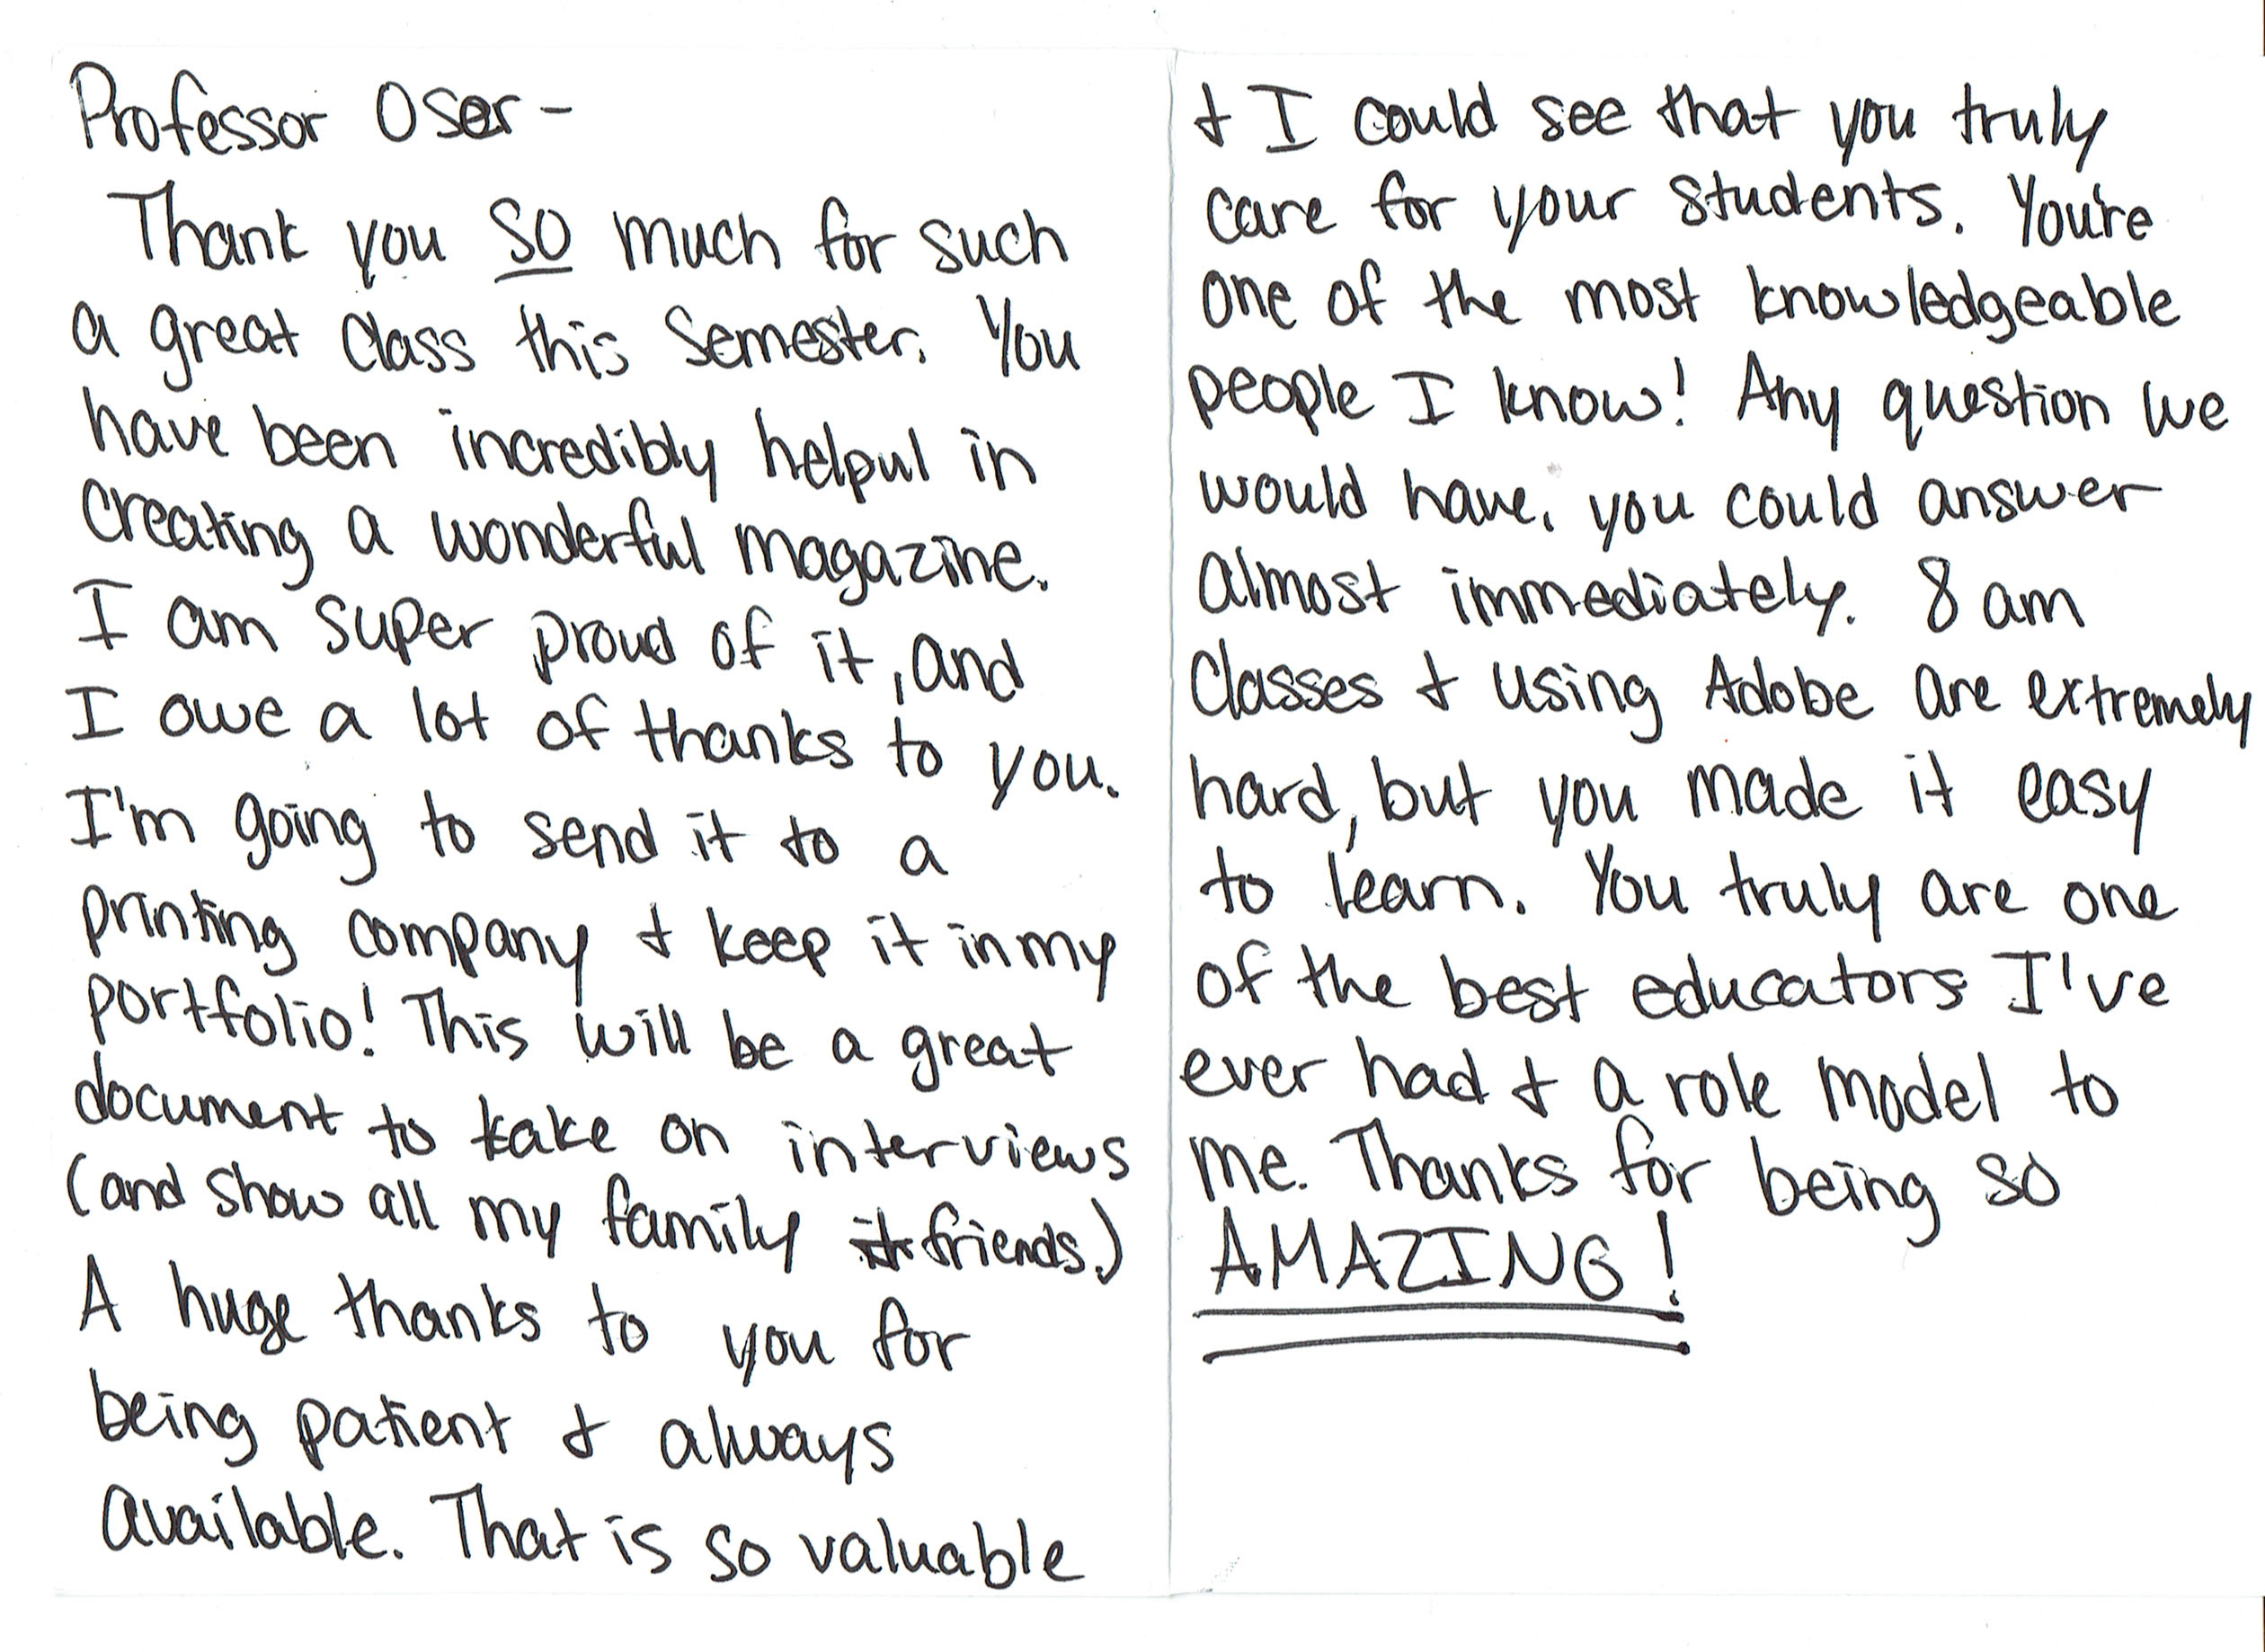 Professor Oser-
Thank you SO much for such
a great class this semester. You
have been incredibly helpul in
creating a wonderful magazine.
I am super proud of it, and
I owe a lot of thanks to you.
I'm going to send it to a
printing company + keep it in my
portfolio! This will be a great
document to take on interviews
(and show all my family friends)
A huge thanks to you for
being patient + always
available. That is so valuable
+ I could see that you truly
care for your students. You're
one of the most knowledgeable
people I know! Any question we
would have, you could answer
almost immediately. 8 am
classes + using Adobe are extremely
hard, but you made it easy
to learn. You truly are one
of the best educators I've
ever had + a role model to
me. Thanks for being so
AMAZING!